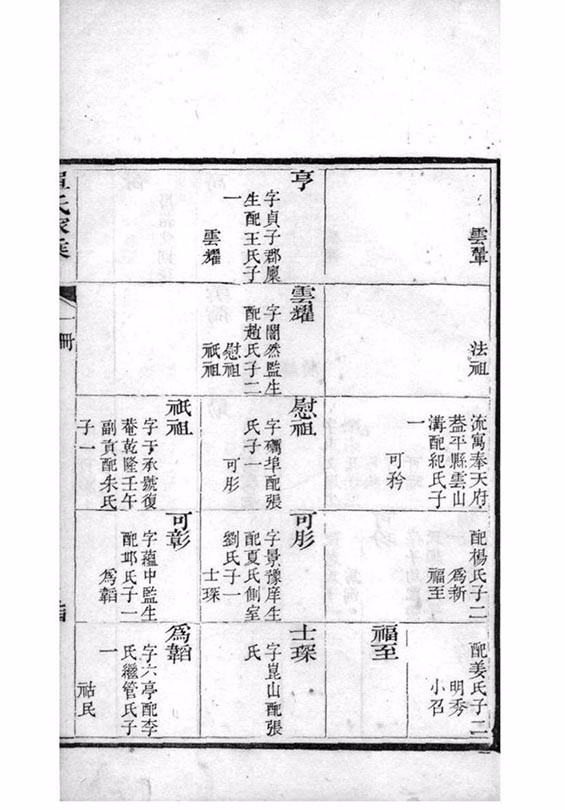 雲鞏
亨
字貞子郡廩
生配王氏子
一
雲耀
法祖
雲耀
字闇然監生
配趙氏子二
慰祖
祇祖
流寓奉天府
葢平縣雲山
溝配紀氏子
一
可矜
慰祖
字礪埠配張
氏子一
可彤
祇祖
字于承號復
菴乾隆壬午
副貢配朱氏
子一
配楊氏子二
爲新
福至
可彤
字景豫庠生
配夏氏側室
劉氏子一
士琛
可彰
字蘊中監生
配邱氏子一
爲韜
配姜氏子二
明秀
小召
福至
士琛
字崑山配張
氏
爲韜
字六亭配李
氏繼管氏子
一
祜民
一冊